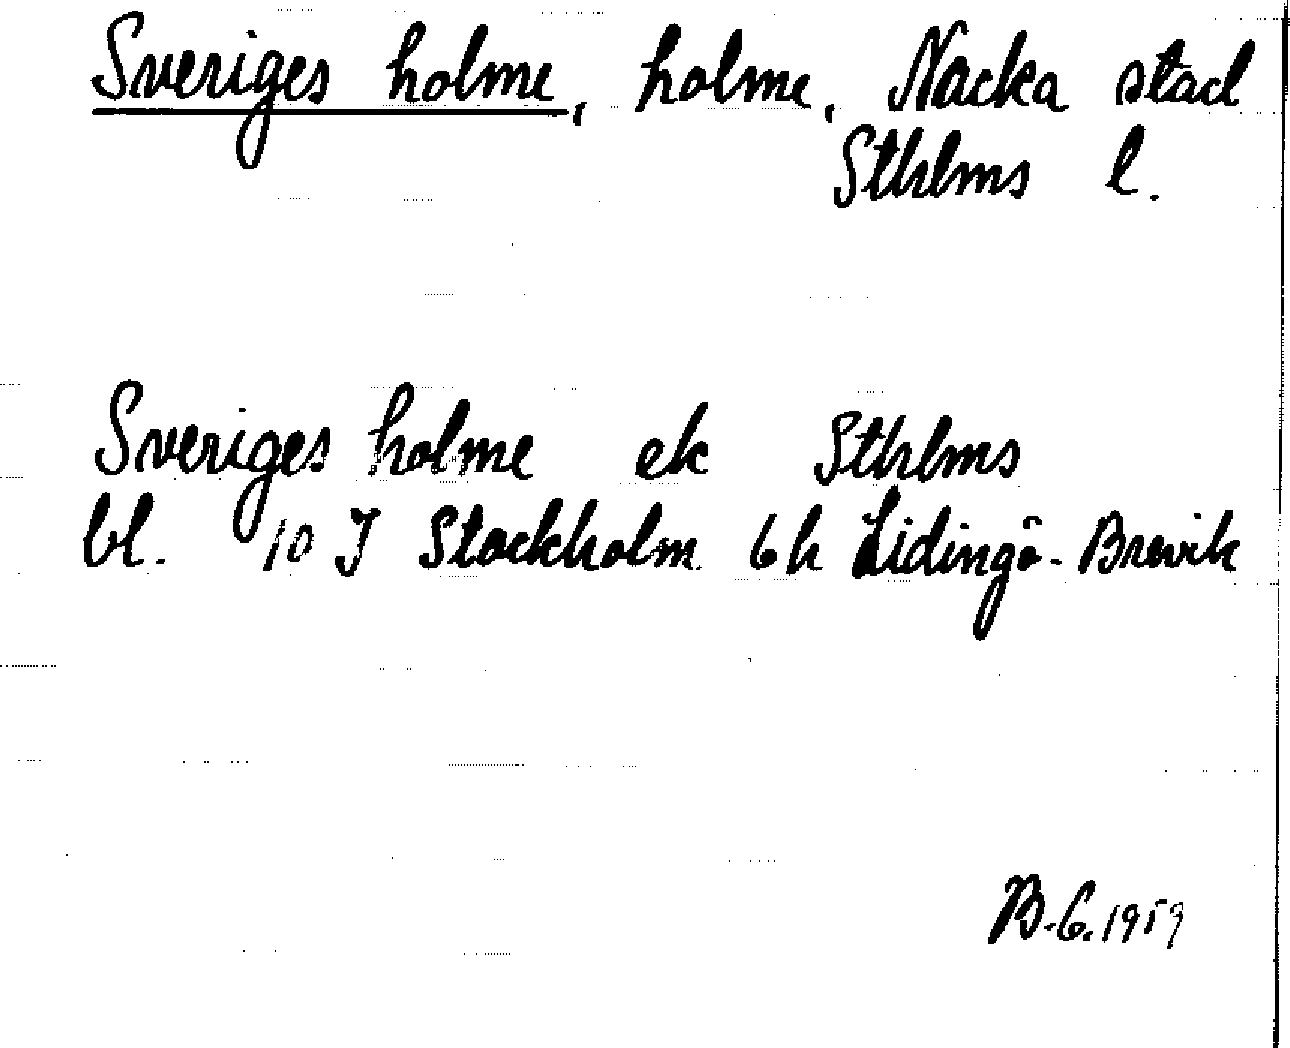 Sveriges holme, holme, Nacka stad
Sthlms l.
Sveriges holme ek Sthlms
bl. 10 J Stockholm 6h Lidingö-Brevik
B-G. 1959